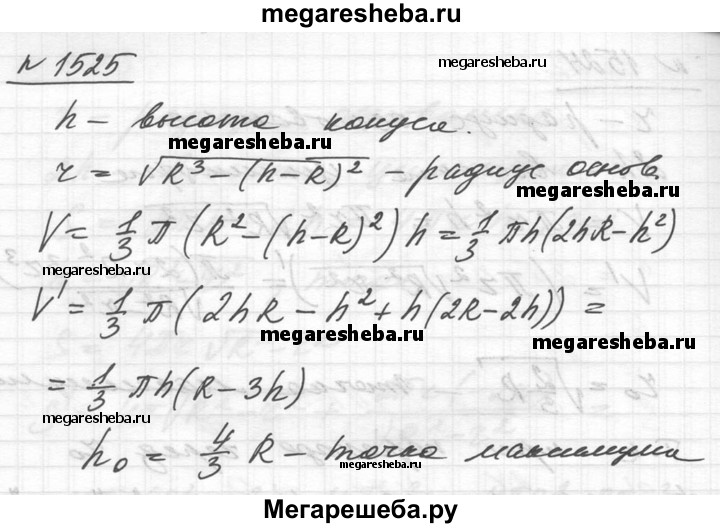 megaresheba.ru
№ 1525
megaresheba.ru
h – высота конуса.
megaresheba.ru
r = √R³ – (h – R)² – радиус основ.
megaresheba.ru
V = 1/3 π (R² – (h – R)²) h = 1/3 πh(2hR – h²)
megaresheba.ru
megaresheba.ru
V' = 1/3 π (2hR – h² + h(2R – 2h)) =
megaresheba.ru
megaresheba.ru
= 1/3 πh(R – 3h)
megaresheba.ru
h₀ = 4/3 R – точка максимума
megaresheba.ru
Мегарешеба.ру